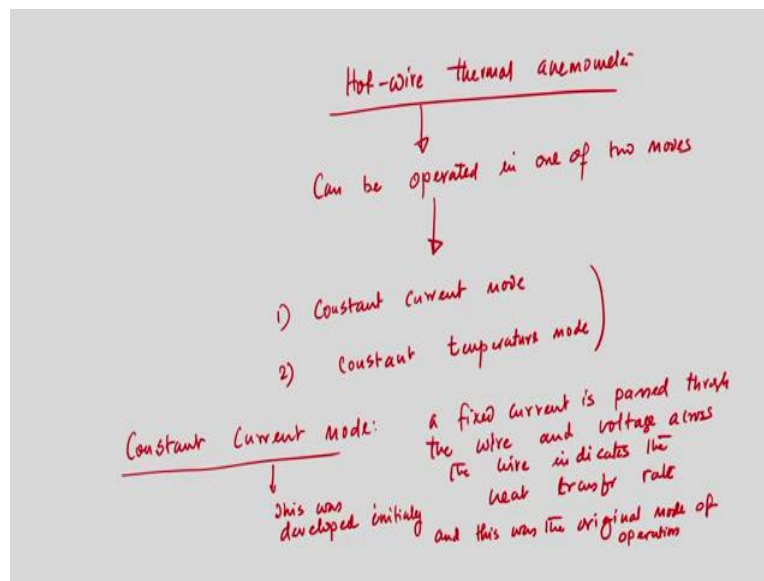 Hot-wire thermal anemometer
Can be operated in one of two modes
1) Constant Current mode
2) Constant temperature mode
Constant Current mode:
a fixed current is passed through
the wire and voltage across
the wire indicates the
heat transfer rate
and this was the original mode of
operation
This was
developed initialy